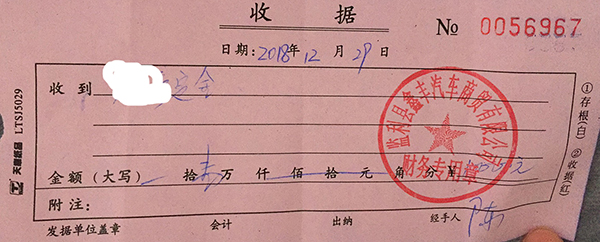 收据
№ 0056967
日期：2018年12月29日
收到 定金
监利县鑫丰汽车商贸有限公司
财务专用章
金额（大写） 拾 万 仟 佰 拾 元 角 分 ¥
附注：
发据单位盖章 会计 出纳 经手人 陈
天意纸品 LTSJ5029
①存根（白） ②收据（红）